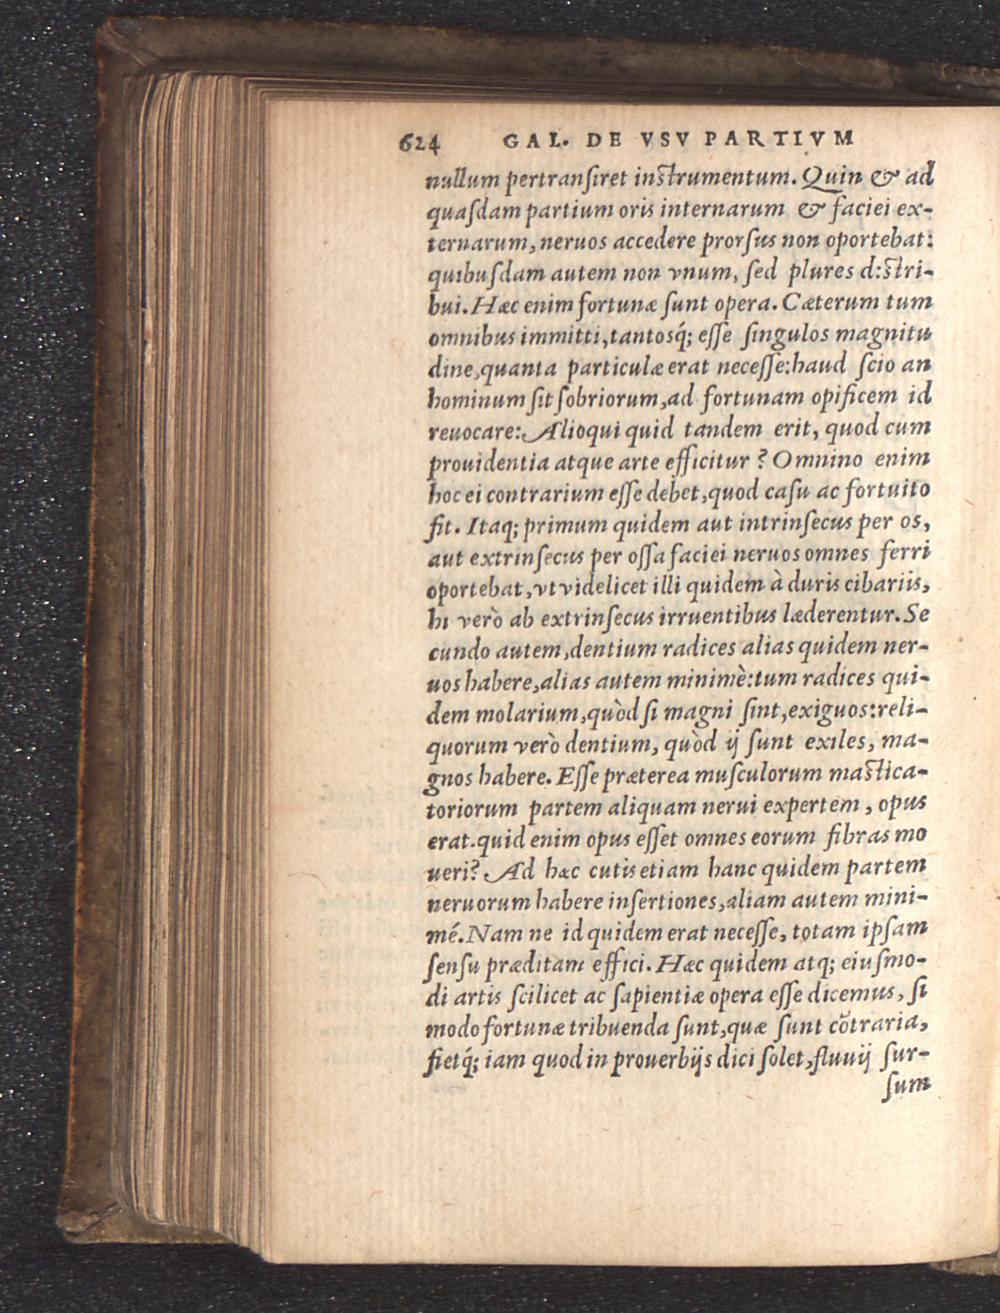 624 GAL. DE VSV PARTIVM
nullum pertranſiret inſtrumentum. Quin & ad
quaſdam partium oris internarum & faciei ex-
ternarum, neruos accedere prorſus non oportebat:
quibuſdam autem non vnum, ſed plures d:ſtri-
bui. Hæc enim fortunæ ſunt opera. Cæterum tum
omnibus immitti, tantosq́; eſſe ſingulos magnitu
dine, quanta particulæ erat neceſſe: haud ſcio an
hominum ſit ſobriorum, ad fortunam opificem id
reuocare: Alioqui quid tandem erit, quod cum
prouidentia atque arte efficitur? Omnino enim
hoc ei contrarium eſſe debet, quod caſu ac fortuito
fit. Itaq; primum quidem aut intrinſecus per os,
aut extrinſecus per oſſa faciei neruos omnes ferri
oportebat, vt videlicet illi quidem à duris cibariis,
hi verò ab extrinſecus irruentibus læderentur. Se
cundo autem, dentium radices alias quidem ner-
uos habere, alias autem minimè: tum radices qui-
dem molarium, quòd ſi magni ſint, exiguos: reli-
quorum verò dentium, quòd ij ſunt exiles, ma-
gnos habere. Eſſe præterea muſculorum maſtica-
toriorum partem aliquam nerui expertem, opus
erat. quid enim opus eſſet omnes eorum fibras mo
ueri? Ad hæc cutis etiam hanc quidem partem
neruorum habere inſertiones, aliam autem mini-
mé. Nam ne id quidem erat neceſſe, totam ipſam
ſenſu præditam effici. Hæc quidem atq; eiuſmo-
di artis ſcilicet ac ſapientiæ opera eſſe dicemus, ſi
modo fortunæ tribuenda ſunt, quæ ſunt cõtraria,
fietq́; iam quod in prouerbijs dici ſolet, fluuij ſur-
ſum